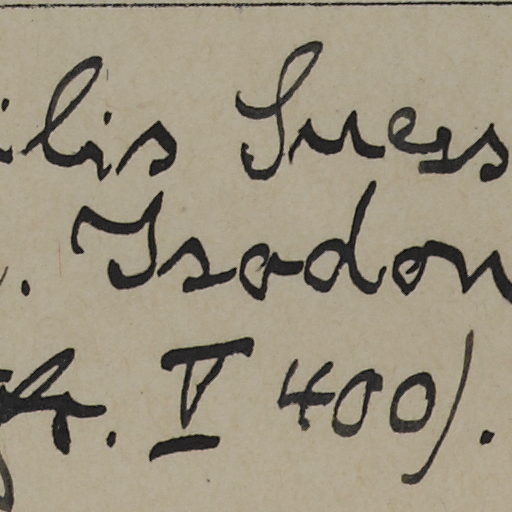 ilis Suess
. Isodon
. V 400).